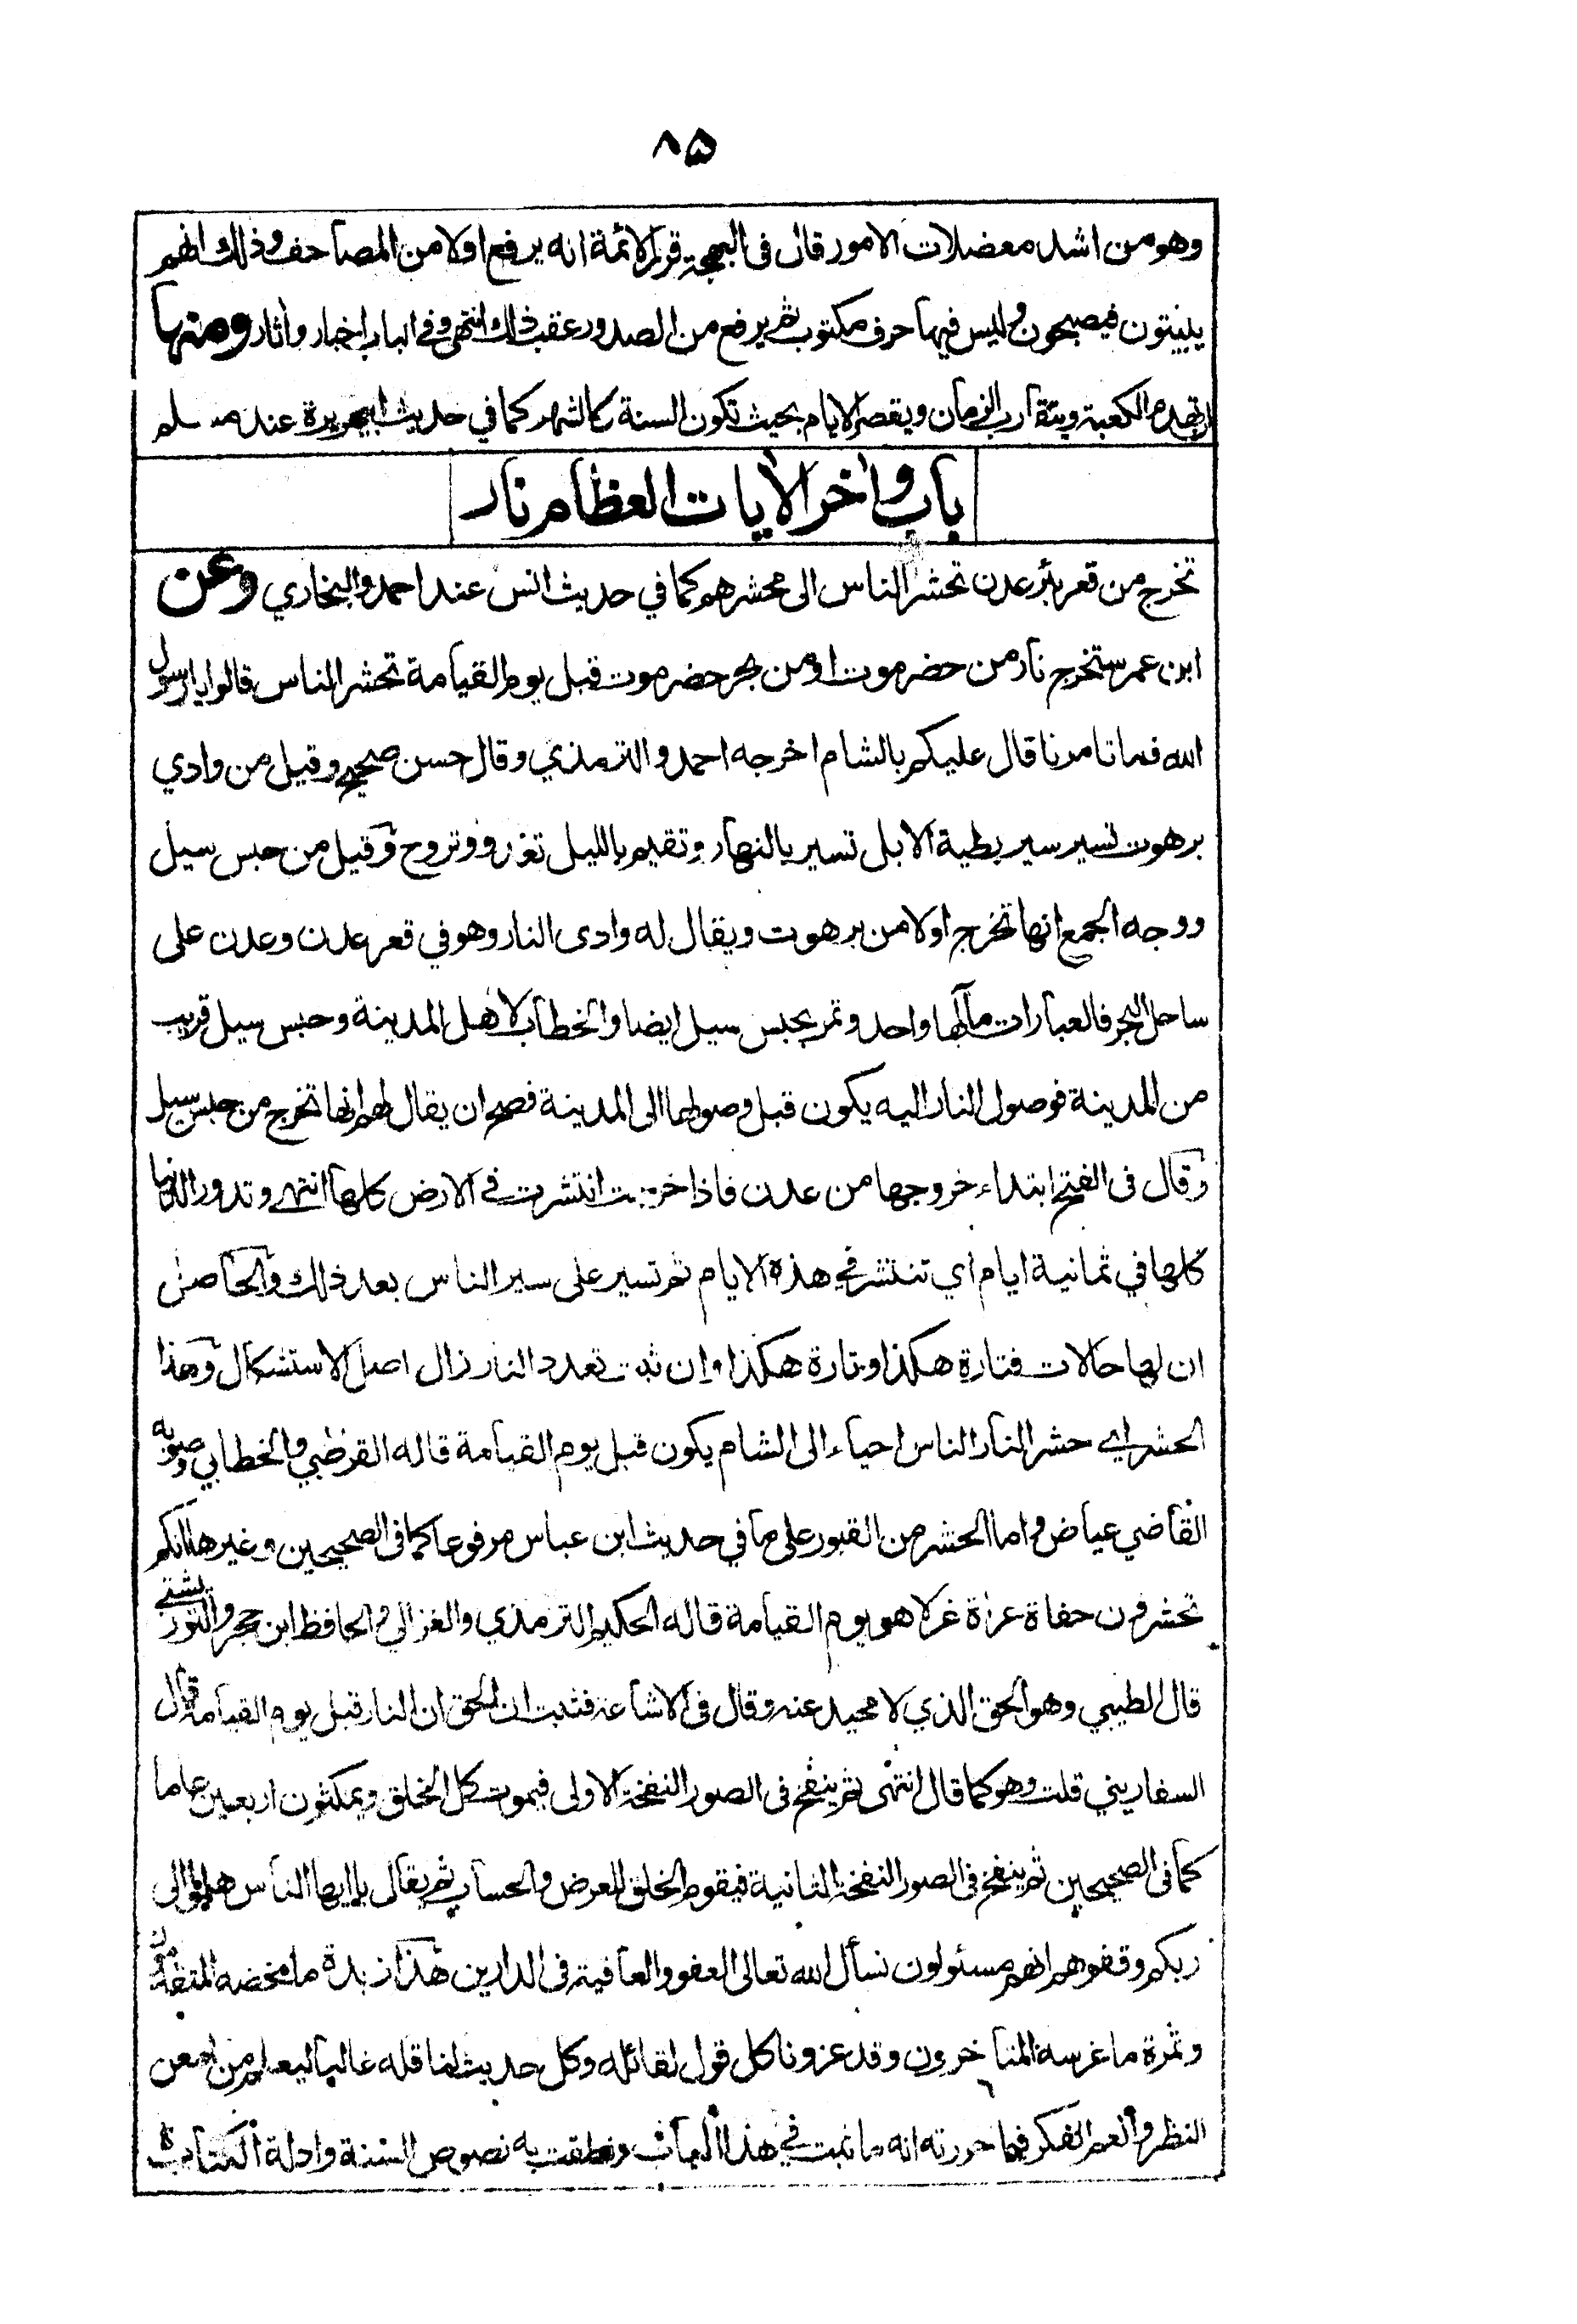 ٨٥
وهو من اشد معضلات الامور قال فى البهجة قرر الائمة انه يرفع اولا من المصاحف وذلك انهم
يبيتون فيصبحون وليس فيها حرف مكتوب ثم يرفع من الصدور عقب ذلك انتهى وفى الباب اخبار وآثار ومنها
ان تهدم الكعبة ويتقارب الزمان ويقصر الايام بحيث تكون السنة كالشهر كما في حديث ابي هريرة عند مسلم
باب وآخر الآيات العظام نار
تخرج من قعر بئر عدن تحشر الناس الى محشرهم كما في حديث انس عند احمد والبخاري وعن
ابن عمر ستخرج نار من حضرموت او من بحر حضرموت قبل يوم القيامة تحشر الناس قالوا يا رسول
الله فما تامرنا قال عليكم بالشام اخرجه احمد والترمذي وقال حسن صحيح وقيل من وادي
برهوت تسير سير بطية الابل تسير بالنهار وتقيم بالليل تغدو وتروح وقيل من حبس سيل
ووجه الجمع انها تخرج اولا من برهوت ويقال له وادى النار وهو في قعر عدن وعدن على
ساحل البحر فالعبارات مآلها واحد وتمر بحبس سيل ايضا والخطاب لاهل المدينة وحبس سيل قريب
من المدينة فوصول النار اليه يكون قبل وصولها الى المدينة فصح ان يقال لهم انها تخرج من حبس سيل
وقال فى الفتح ابتداء خروجها من عدن فاذا خرجت انتشرت في الارض كلها انتهى وتدور الدنيا
كلها في ثمانية ايام اي تنتشر في هذه الايام ثم تسير على سير الناس بعد ذلك والحاصل
ان لها حالات فتارة هكذا وتارة هكذا وان ثبت تعدد النار زال اصل الاستشكال وهذا
الحشر اي حشر النار الناس احياء الى الشام يكون قبل يوم القيامة قاله القرطبي والخطابي وصوبه
القاضي عياض واما الحشر من القبور على ما في حديث ابن عباس مرفوعا كما فى الصحيحين وغيرهما انكم
تحشرون حفاة عراة غرلا هو يوم القيامة قاله الحكيم الترمذي والغزالي والحافظ ابن حجر والتوربشتي
قال الطيبي وهو الحق الذي لا محيد عنه وقال فى الاشاعة فثبت ان الحق ان النار قبل يوم القيامة قال
السفاريني قلت وهو كما قال انتهى ثم ينفخ فى الصور النفخة الاولى فيموت كل الخلق ويمكثون اربعين عاما
كما فى الصحيحين ثم ينفخ فى الصور النفخة الثانية فيقوم الخلق للعرض والحساب ثم يقال يا ايها الناس هلموا الى
ربكم وقفوهم انهم مسئولون نسأل الله تعالى العفو والعافية فى الدارين هذا زبدة ما مخضه المتقدمون
وثمرة ما غرسه المتأخرون وقد عزونا كل قول لقائله وكل حديث لناقله غالبا ليعلم من امعن
النظر وأنعم الفكر فيما حررته انه ما ثبت في هذا الباب ونطقت به نصوص السنة وادلة الكتاب